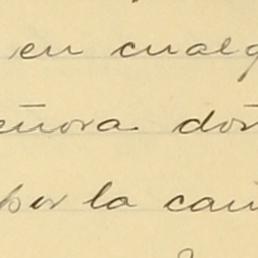 en cualq
eñora don
por la cau